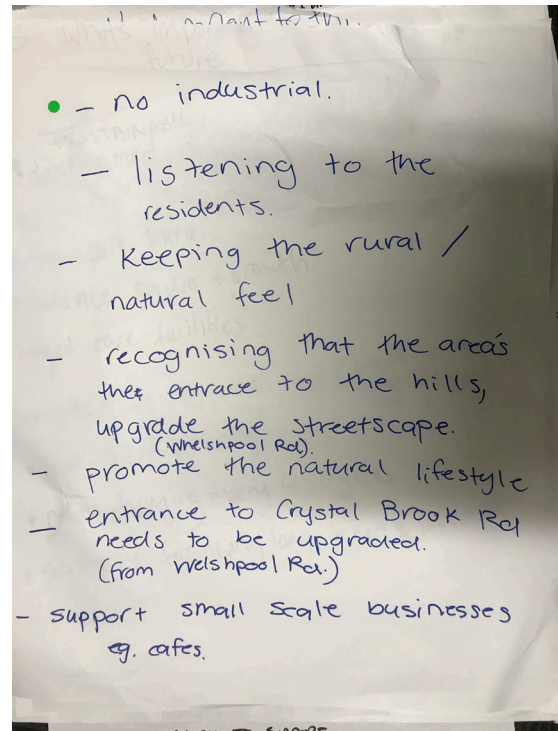 - no industrial.
- listening to the
residents.
- Keeping the rural /
natural feel
- recognising that the area's
the entrace to the hills,
upgrade the streetscape.
(Whelshpool Rd).
- promote the natural lifestyle
- entrance to Crystal Brook Rd
needs to be upgraded.
(from Welshpool Rd.)
- support small scale businesses
eg. cafes.